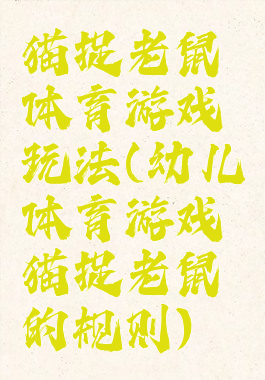 猫捉老鼠
体育游戏
玩法(幼儿
体育游戏
猫捉老鼠
的规则)